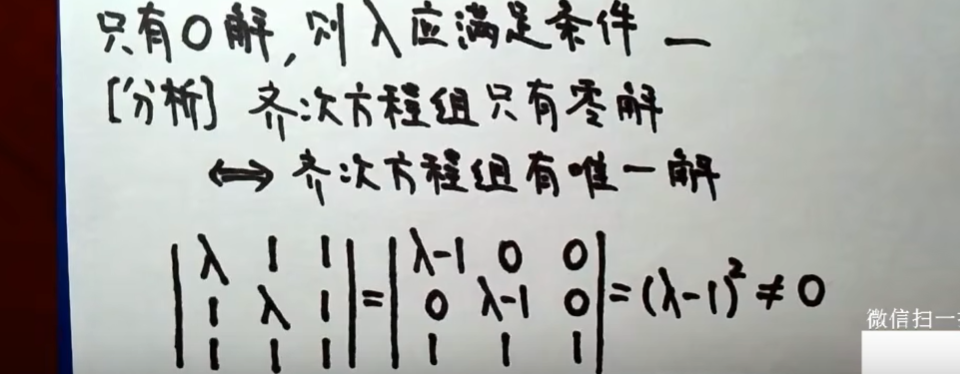 只有0解,则λ应满足条件 __
[分析] 齐次方程组只有零解
⟺ 齐次方程组有唯一解
|λ 1 1| |λ-1 0 0|
|1 λ 1| = |0 λ-1 0| = (λ-1)² ≠ 0
|1 1 1| |1 1 1|
微信扫一